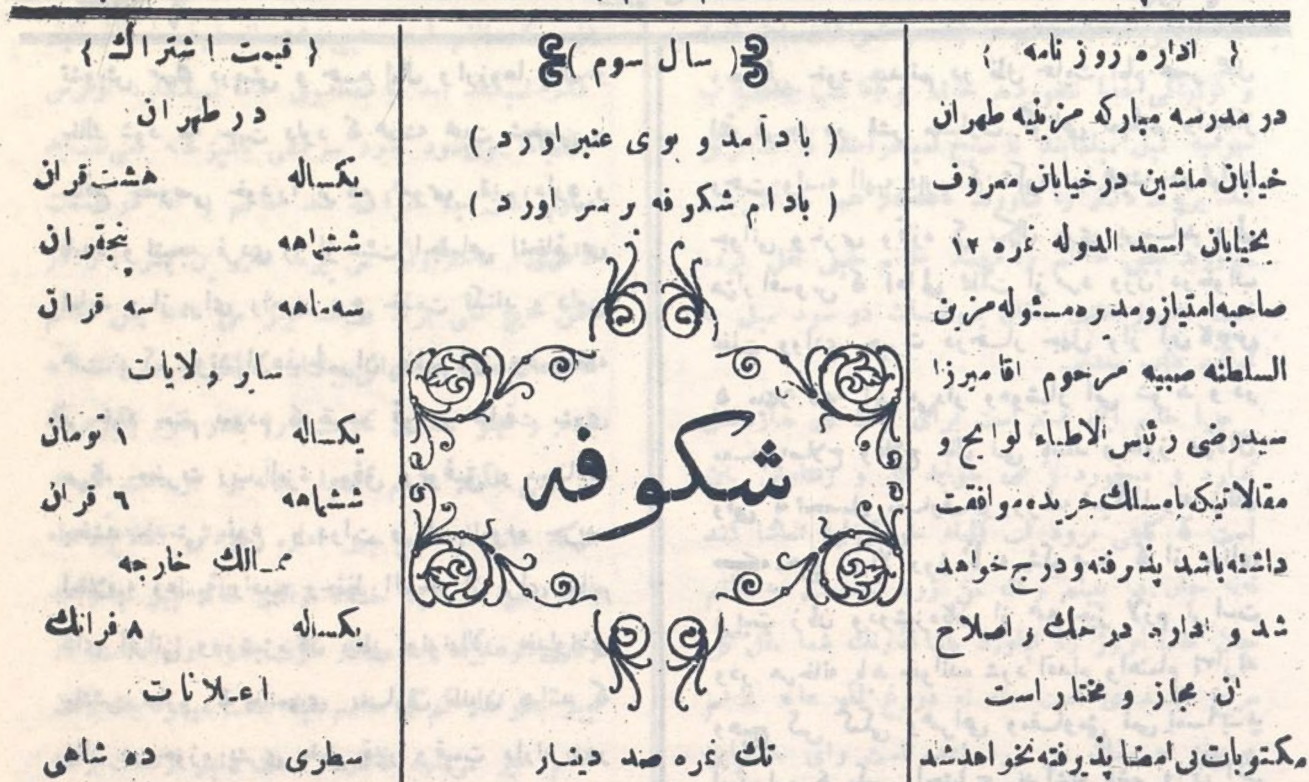 { اداره روزنامه }
در مدرسه مبارکه مزینیه طهران
خیابان ماشین در خیابان معروف
بخیابان اسعد الدوله نمره ۱۲
صاحبه امتیاز و مدیره مسئوله مزین
السلطنه صبیه مرحوم اقا میرزا
سید رضی رئیس الاطباء لوایح و
مقالاتیکه با مسلك جریده موافقت
داشته باشد پذیرفته و درج خواهد
شد و اداره در حك و اصلاح
ان مجاز و مختار است
مکتوبات بی امضا پذیرفته نخواهد شد
( سال سوم )
( باد آمد و بوی عنبر اورد )
( بادام شکوفه بر سر اورد )
شکوفه
تك نمره صد دینار
{ قیمت اشتراك }
در طهران
یکساله هشت قران
ششماهه پنجقران
سه ماهه سه قران
سایر ولایات
یکساله ۱ تومان
ششماهه ٦ قران
ممالك خارجه
یکساله ۸ فرانك
اعلانات
سطری ده شاهی